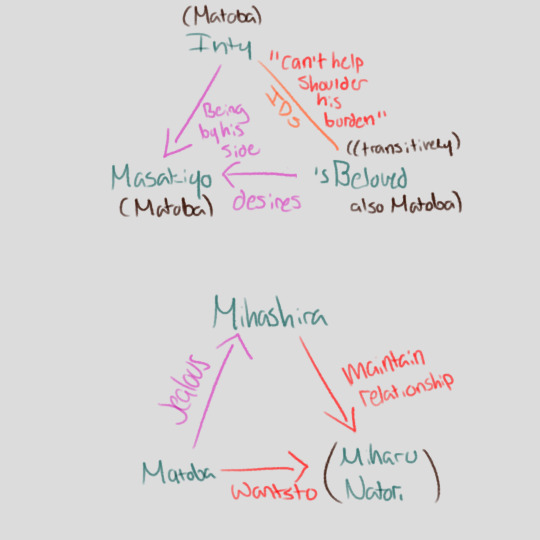 (Matoba)
Inty
"Can't help
shoulder
his
burden"
IDs
Being
by his
side
((transitively)
Masakiyo
's Beloved
(Matoba)
desires
also Matoba)
Mihashira
Jealous
Maintain
relationship
Matoba
wants to
(Miharu
Natori)